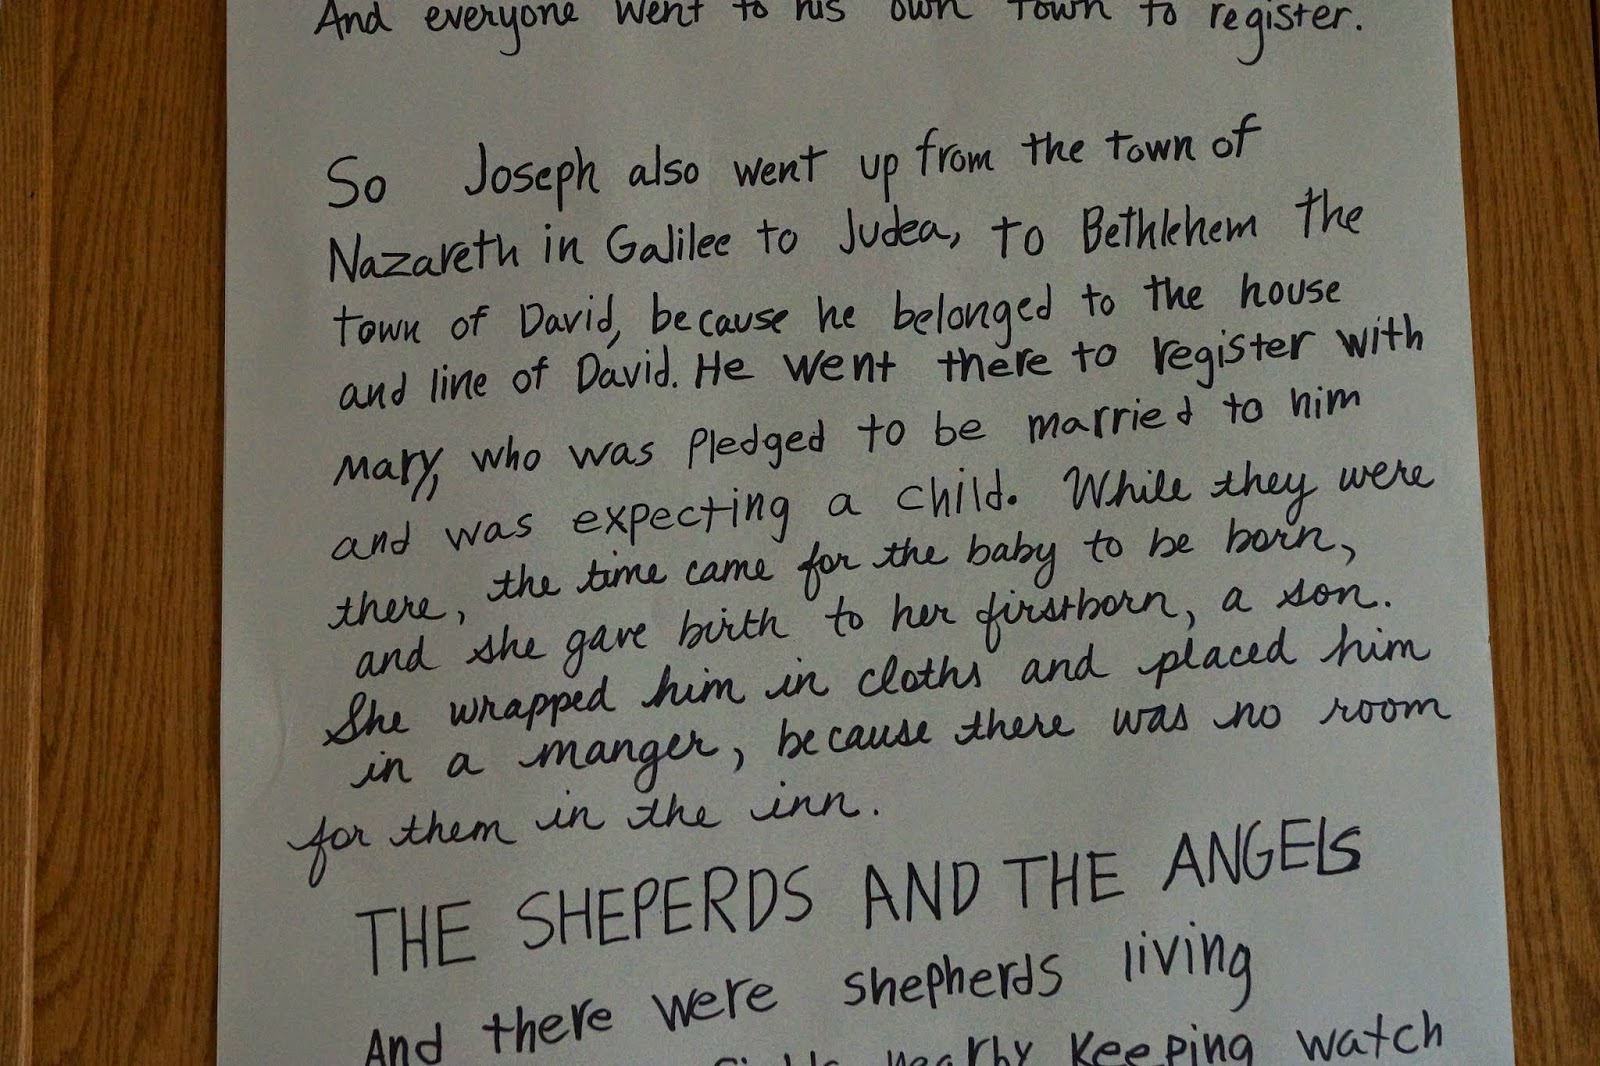 And everyone went to his own town to register.
So Joseph also went up from the town of
Nazareth in Galilee to Judea, to Bethlehem the
town of David, because he belonged to the house
and line of David. He went there to register with
Mary, who was pledged to be married to him
and was expecting a child. While they were
there, the time came for the baby to be born,
and she gave birth to her firstborn, a son.
She wrapped him in cloths and placed him
in a manger, because there was no room
for them in the inn.
THE SHEPERDS AND THE ANGELS
And there were shepherds living
nearby keeping watch